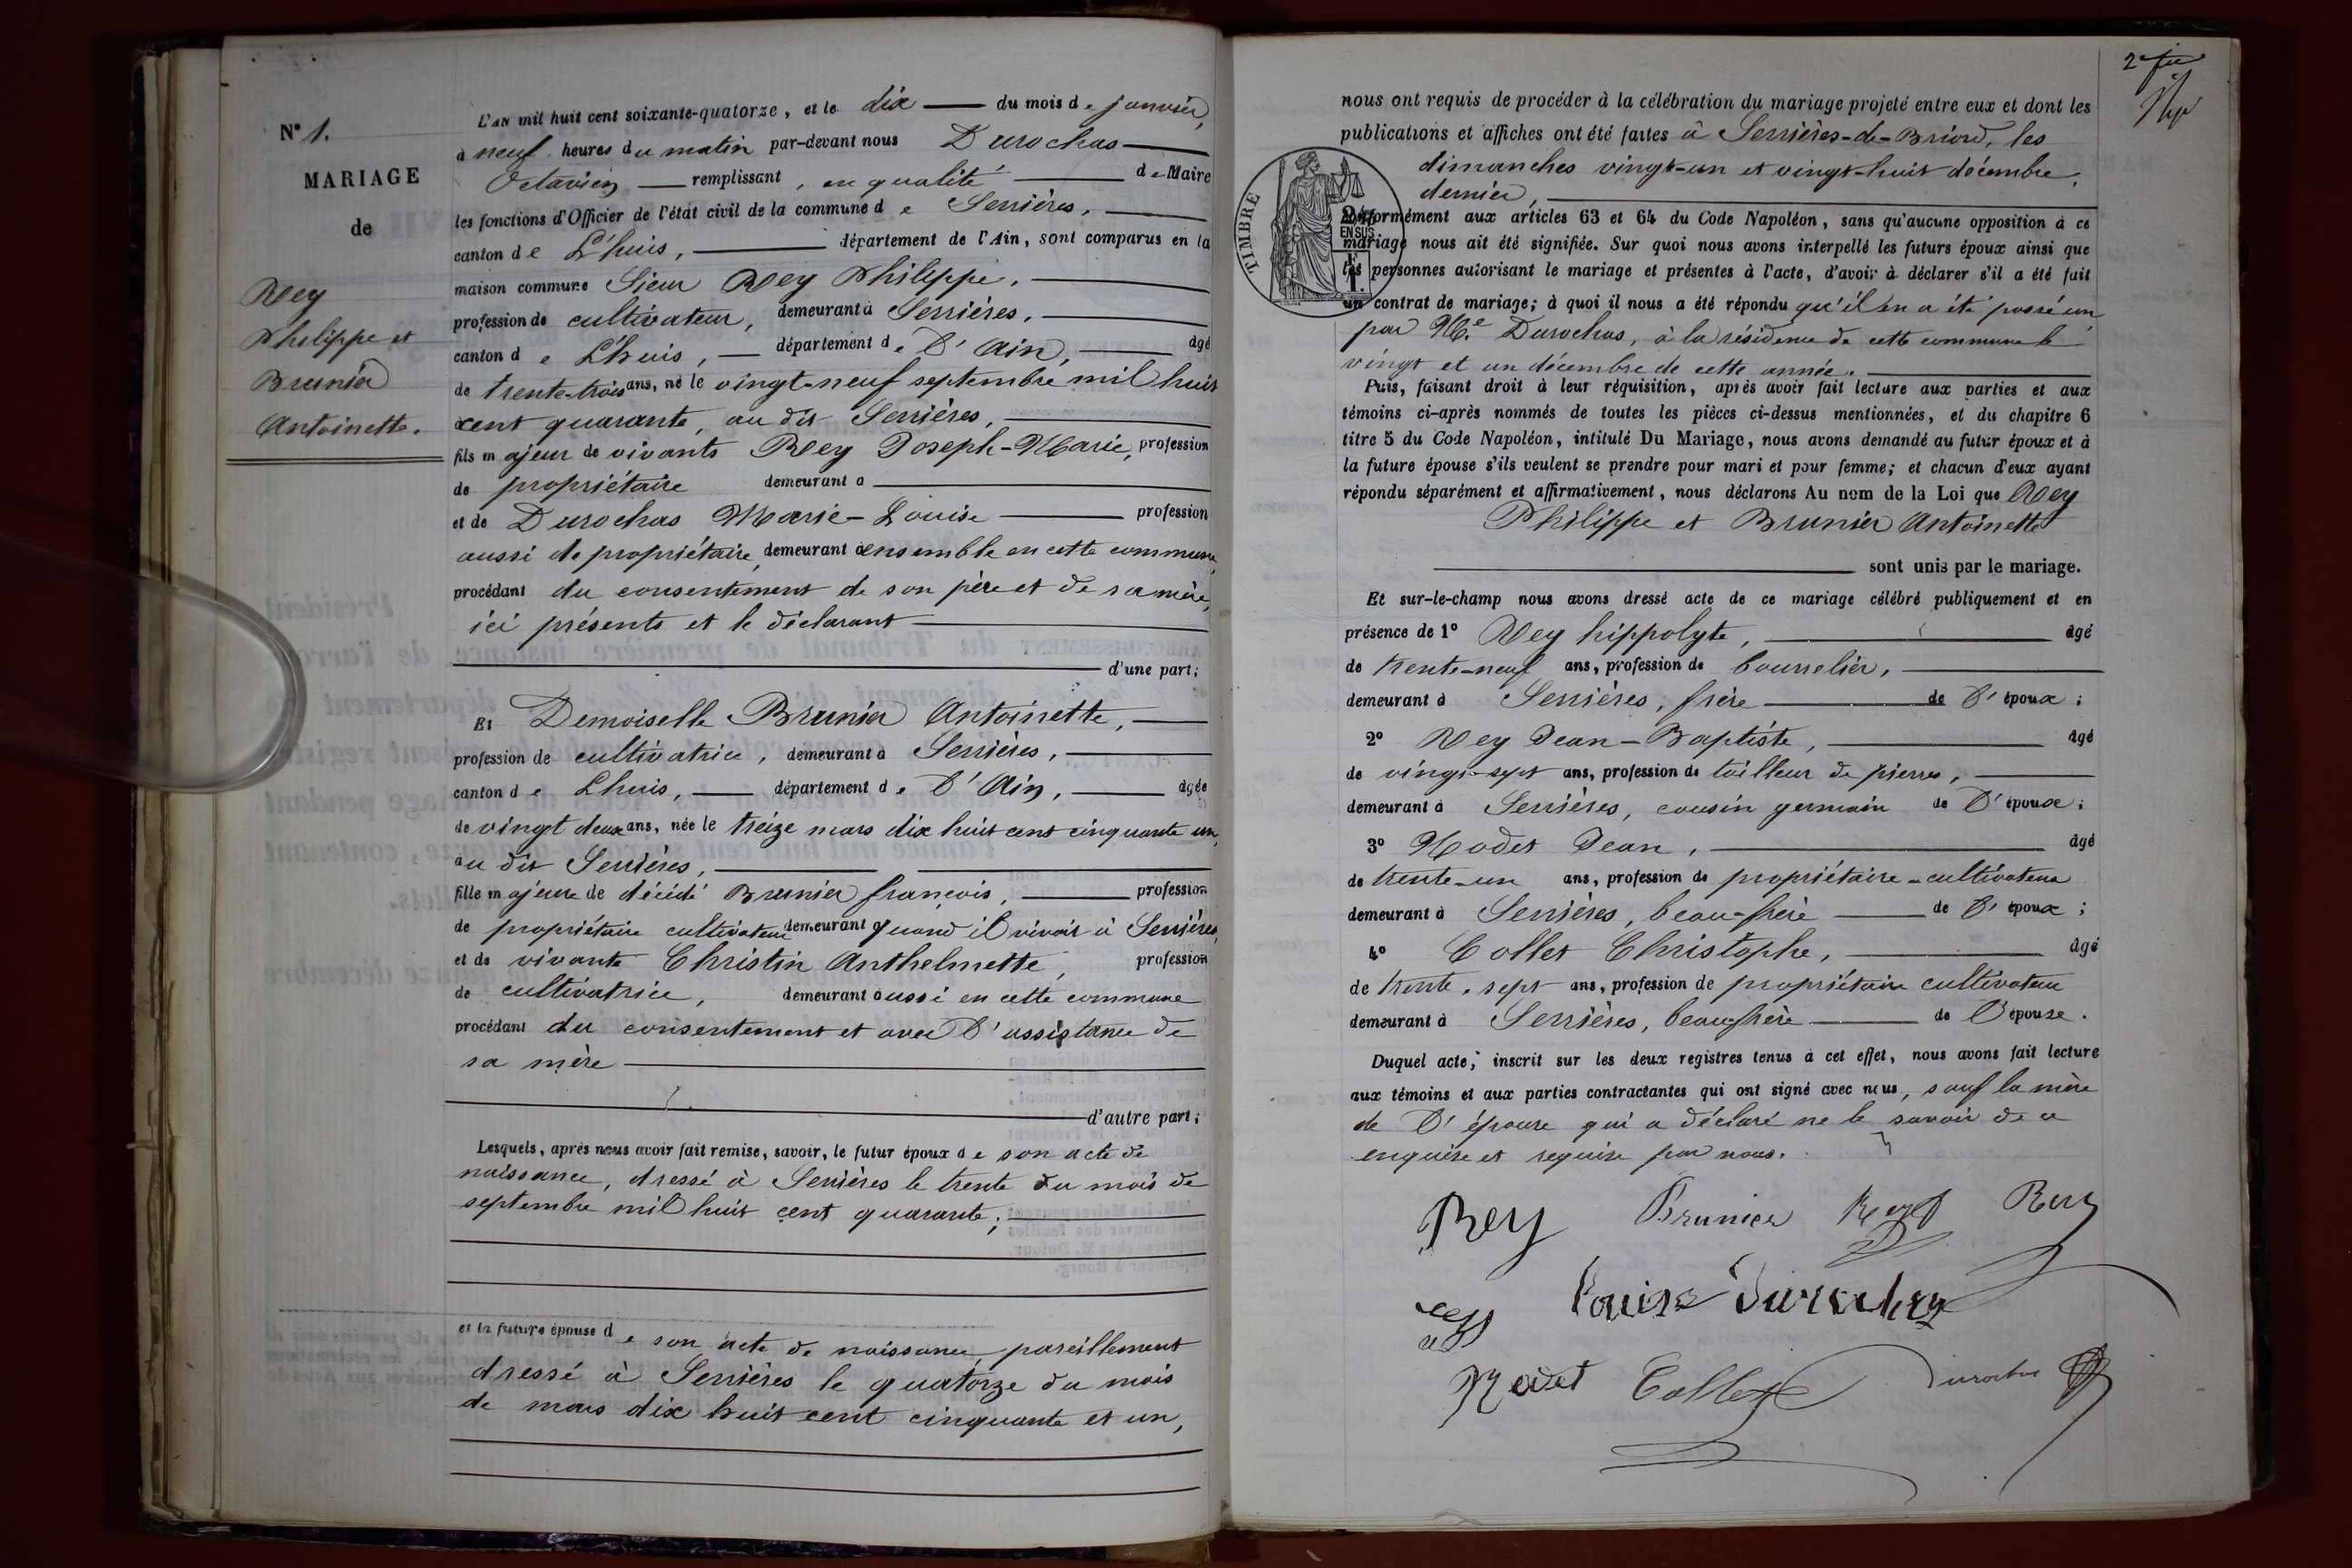 N° 1.
MARIAGE
de
Rey
Philippe et
Brunier
Antoinette.
L'AN mil huit cent soixante-quatorze, et le dix du mois de janvier,
à neuf heures du matin par-devant nous Durochas
Octavien remplissant, en qualité de Maire
les fonctions d'Officier de l'état civil de la commune de Serrières,
canton de L'huis, département de l'Ain, sont comparus en la
maison commune Sieur Rey Philippe,
profession de cultivateur, demeurant à Serrières,
canton de L'huis, département de L'Ain, âgé
de trente-trois ans, né le vingt-neuf septembre mil huit
cent quarante, au dit Serrières,
fils majeur de vivants Rey Joseph-Marie, profession
de propriétaire demeurant à
et de Durochas Marie-Louise profession
aussi de propriétaire, demeurant à ensemble en cette commune,
procédant du consentement de son père et de sa mère,
ici présents et le déclarant
d'une part;
Et Demoiselle Brunier Antoinette,
profession de cultivatrice, demeurant à Serrières,
canton de Lhuis, département de L'Ain, âgée
de vingt deux ans, née le treize mars dix huit cent cinquante un,
au dit Serrières,
fille majeure de décédé Brunier françois, profession
de propriétaire cultivateur demeurant quand il vivait à Serrières,
et de vivante Christin Anthelmette, profession
de cultivatrice, demeurant aussi en cette commune
procédant du consentement et avec l'assistance de
sa mère
d'autre part;
Lesquels, après nous avoir fait remise, savoir, le futur époux de son acte de
naissance, dressé à Serrières le trente du mois de
septembre mil huit cent quarante;
et la future épouse de son acte de naissance pareillement
dressé à Serrières le quatorze du mois
de mars dix huit cent cinquante et un,
nous ont requis de procéder à la célébration du mariage projeté entre eux et dont les
publications et affiches ont été faites à Serrières-de-Briord, les
dimanches vingt-un et vingt-huit décembre
dernier,
TIMBRE
2/10 EN SUS
conformément aux articles 63 et 64 du Code Napoléon, sans qu'aucune opposition à ce
mariage nous ait été signifiée. Sur quoi nous avons interpellé les futurs époux ainsi que
les personnes autorisant le mariage et présentes à l'acte, d'avoir à déclarer s'il a été fait
un contrat de mariage; à quoi il nous a été répondu qu'il en a été passé un
par Me. Durochas, à la résidence de cette commune le
vingt et un décembre de cette année.
Puis, faisant droit à leur réquisition, après avoir fait lecture aux parties et aux
témoins ci-après nommés de toutes les pièces ci-dessus mentionnées, et du chapitre 6
titre 5 du Code Napoléon, intitulé Du Mariage, nous avons demandé au futur époux et à
la future épouse s'ils veulent se prendre pour mari et pour femme; et chacun d'eux ayant
répondu séparément et affirmativement, nous déclarons Au nom de la Loi que Rey
Philippe et Brunier Antoinette
sont unis par le mariage.
Et sur-le-champ nous avons dressé acte de ce mariage célébré publiquement et en
présence de 1° Rey hippolyte, âgé
de trente-neuf ans, profession de bourrelier,
demeurant à Serrières, frère de L'époux;
2° Rey Jean-Baptiste, âgé
de vingt-sept ans, profession de tailleur de pierres,
demeurant à Serrières, cousin germain de L'époux;
3° Modet Jean, âgé
de trente-un ans, profession de propriétaire-cultivateur
demeurant à Serrières, beau-frère de L'époux;
4° Collet Christophe, âgé
de trente-sept ans, profession de propriétaire cultivateur
demeurant à Serrières, beau-frère de L'épouse.
Duquel acte, inscrit sur les deux registres tenus à cet effet, nous avons fait lecture
aux témoins et aux parties contractantes qui ont signé avec nous, sauf la mère
de L'épouse qui a déclaré ne le savoir de ce
enquise et requise par nous.
Rey Brunier Rey Rey
Louise Durochas
Modet Collet Durochas